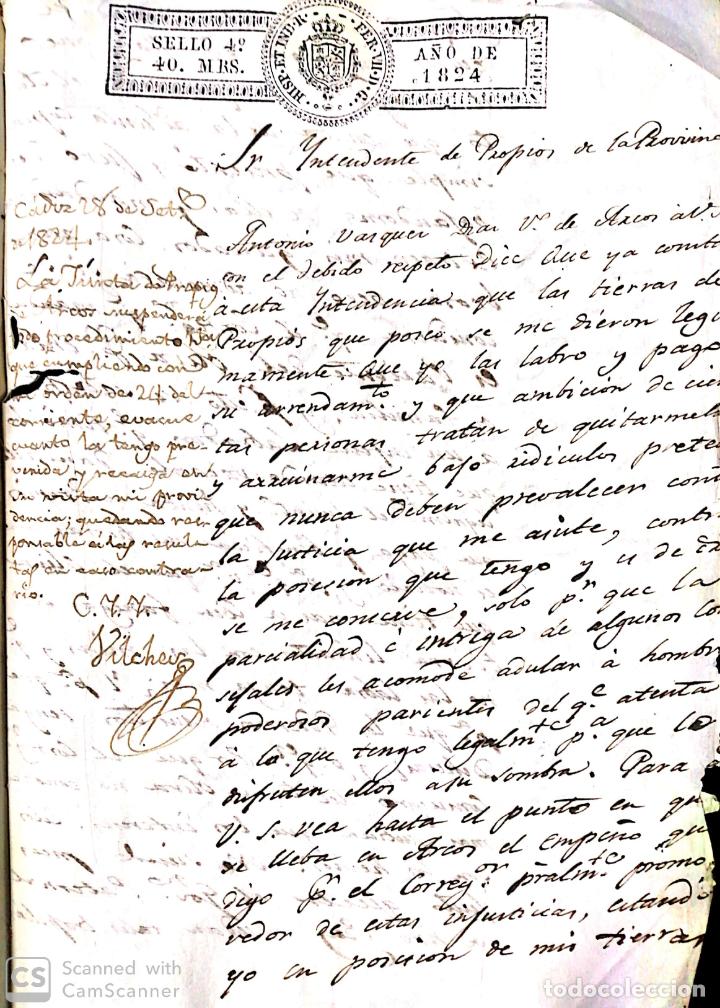 SELLO 4º
40. MRS.
HISP. ET IND. R.
FERD. VII. D. G.
AÑO DE
1824
Sr Yntendente de Propios de la Provin
Cadiz 28 de Set.e
de 1824.
La Junta de Propios
de Arcos suspenderá
todo procedimiento
que cumpliendo con
mi orden de 24 del
corriente, evacue
cuanto la tengo pre-
venida y recaiga en
su vista mi provi-
dencia; quedando res-
ponsable á las resul-
tas en caso contra-
rio.
C. Y. Y.
Vilches
Antonio Vazquez Diaz V.º de Arcos á V.S.
con el debido respeto Dice Que ya
á esta Yntendencia que las tierras de
Propios que poseo se me dieron legiti
mamente: Que yo las labro y pago
su arrendam.to y que ambicion de cier
tas personas tratan de quitarmela
y arruinarme bajo ridiculos pretes
que nunca deben prevalecer cont
la Justicia que me asiste, contra
la posesion que tengo y es de
se me conserve, solo p.r que la
parcialidad é intriga de algunos Con
sejales les acomode adular á hombr
poderosos parientes del q.e atenta
á lo que tengo legalm.te p.a que lo
disfruten ellos á su sombra. Para q
V. S. vea hasta el punto en qu
se lleba en Arcos el empeño qu
digo p.r el Correg.or pralm.te promo
vedor de estas injusticias, estand
yo en posesion de mis tierras
CS
Scanned with
CamScanner
todocoleccion